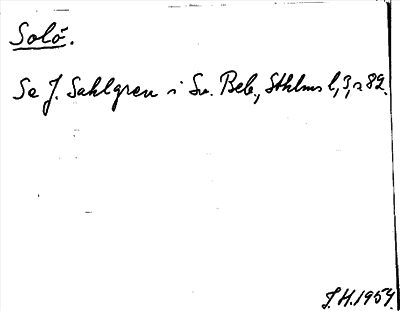 Solö.
Se J. Sahlgren i Sv. Beb., Sthlms l, 3, s 82.
J. H. 1954.